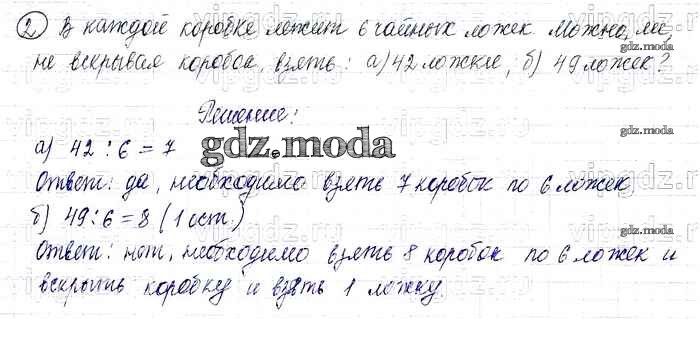 2) В каждой коробке лежит 6 чайных ложек. Можно ли,
gdz.moda
не вскрывая коробок, взять: а) 42 ложки; б) 49 ложек?
Решение:
а) 42 : 6 = 7
gdz.moda
gdz.moda
Ответ: да, необходимо взять 7 коробок по 6 ложек.
б) 49 : 6 = 8 (1 ост.)
gdz.moda
Ответ: нет, необходимо взять 8 коробок по 6 ложек и
вскрыть коробку и взять 1 ложку.